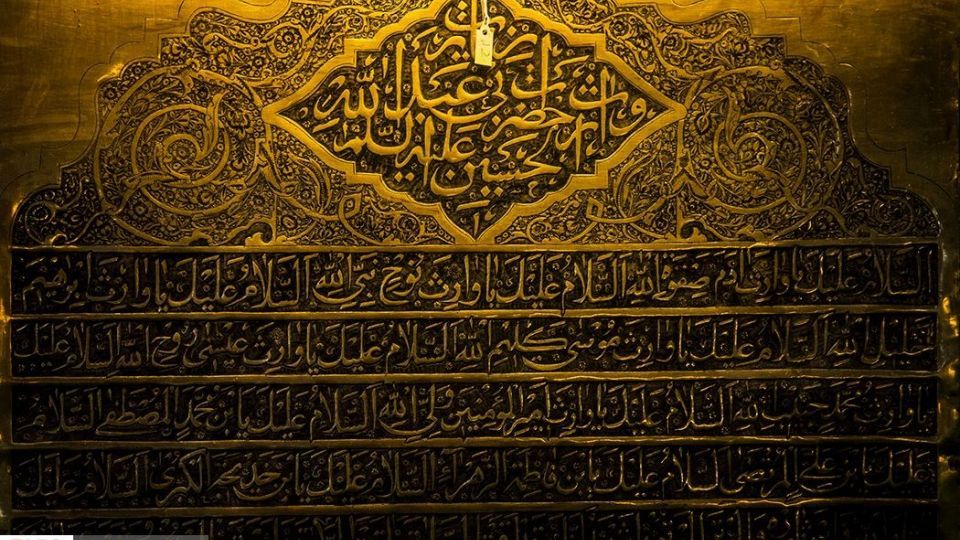 زيارت
وارث حضرت ابي عبدالله
الحسين عليه السلام
السلام عليك يا وارث آدم صفوة الله السلام عليك يا وارث نوح نبي الله السلام عليك يا وارث ابرهيم
خليل الله السلام عليك يا وارث موسى كليم الله السلام عليك يا وارث عيسى روح الله السلام عليك
يا وارث محمد حبيب الله السلام عليك يا وارث امير المؤمنين ولي الله السلام عليك يا بن محمد المصطفى السلام
عليك يا بن علي المرتضى السلام عليك يا بن فاطمة الزهراء السلام عليك يا بن خديجة الكبرى السلام عليك